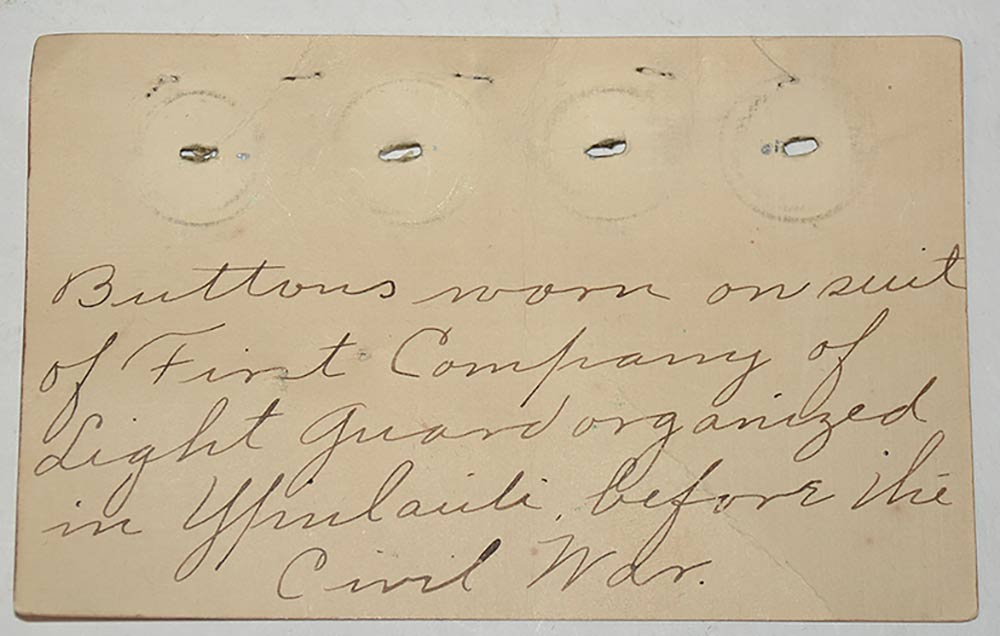 Buttons worn on suit
of First Company of
Light Guard organized
in Ypsilanti, before the
Civil War.